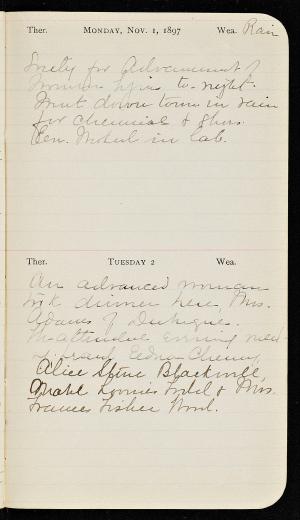 Ther. MONDAY, NOV. 1, 1897 Wea. Rain
Society for Advancement of
Women here to-night.
Went down town in rain
for chemical & shoes.
in lab.
Ther. TUESDAY 2 Wea.
An advanced woman
took dinner here, Mrs.
Adams of Dubuque.
attended evening
Ednah Cheney
Alice Stone Blackwell
Mabel Loomis Todd & Mrs.
Frances Fisher Wood.